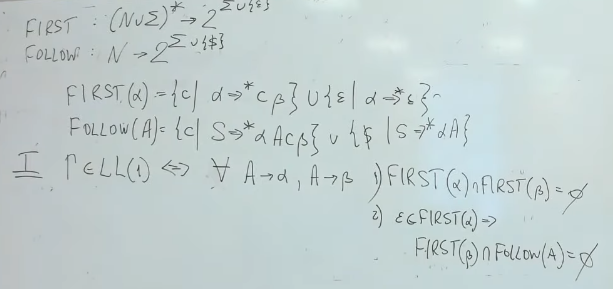 FIRST : (N∪Σ)* → 2^{Σ∪{ε}}
FOLLOW : N → 2^{Σ∪{$}}
FIRST(α) = {c| α ⇒* cβ} ∪ {ε| α ⇒* ε}
FOLLOW(A) = {c| S ⇒* αAcβ} ∪ {$ | S ⇒* αA}
I Γ ∈ LL(1) ⇔ ∀ A→α, A→β 1) FIRST(α)∩FIRST(β)=∅
2) ε∈FIRST(α) ⇒
FIRST(β)∩FOLLOW(A)=∅